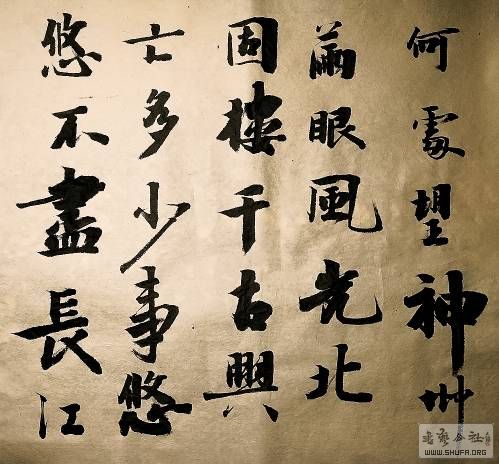 何處望神州
滿眼風光北
固樓千古興
亡多少事悠
悠不盡長江
書藝公社
WWW.SHUFA.ORG